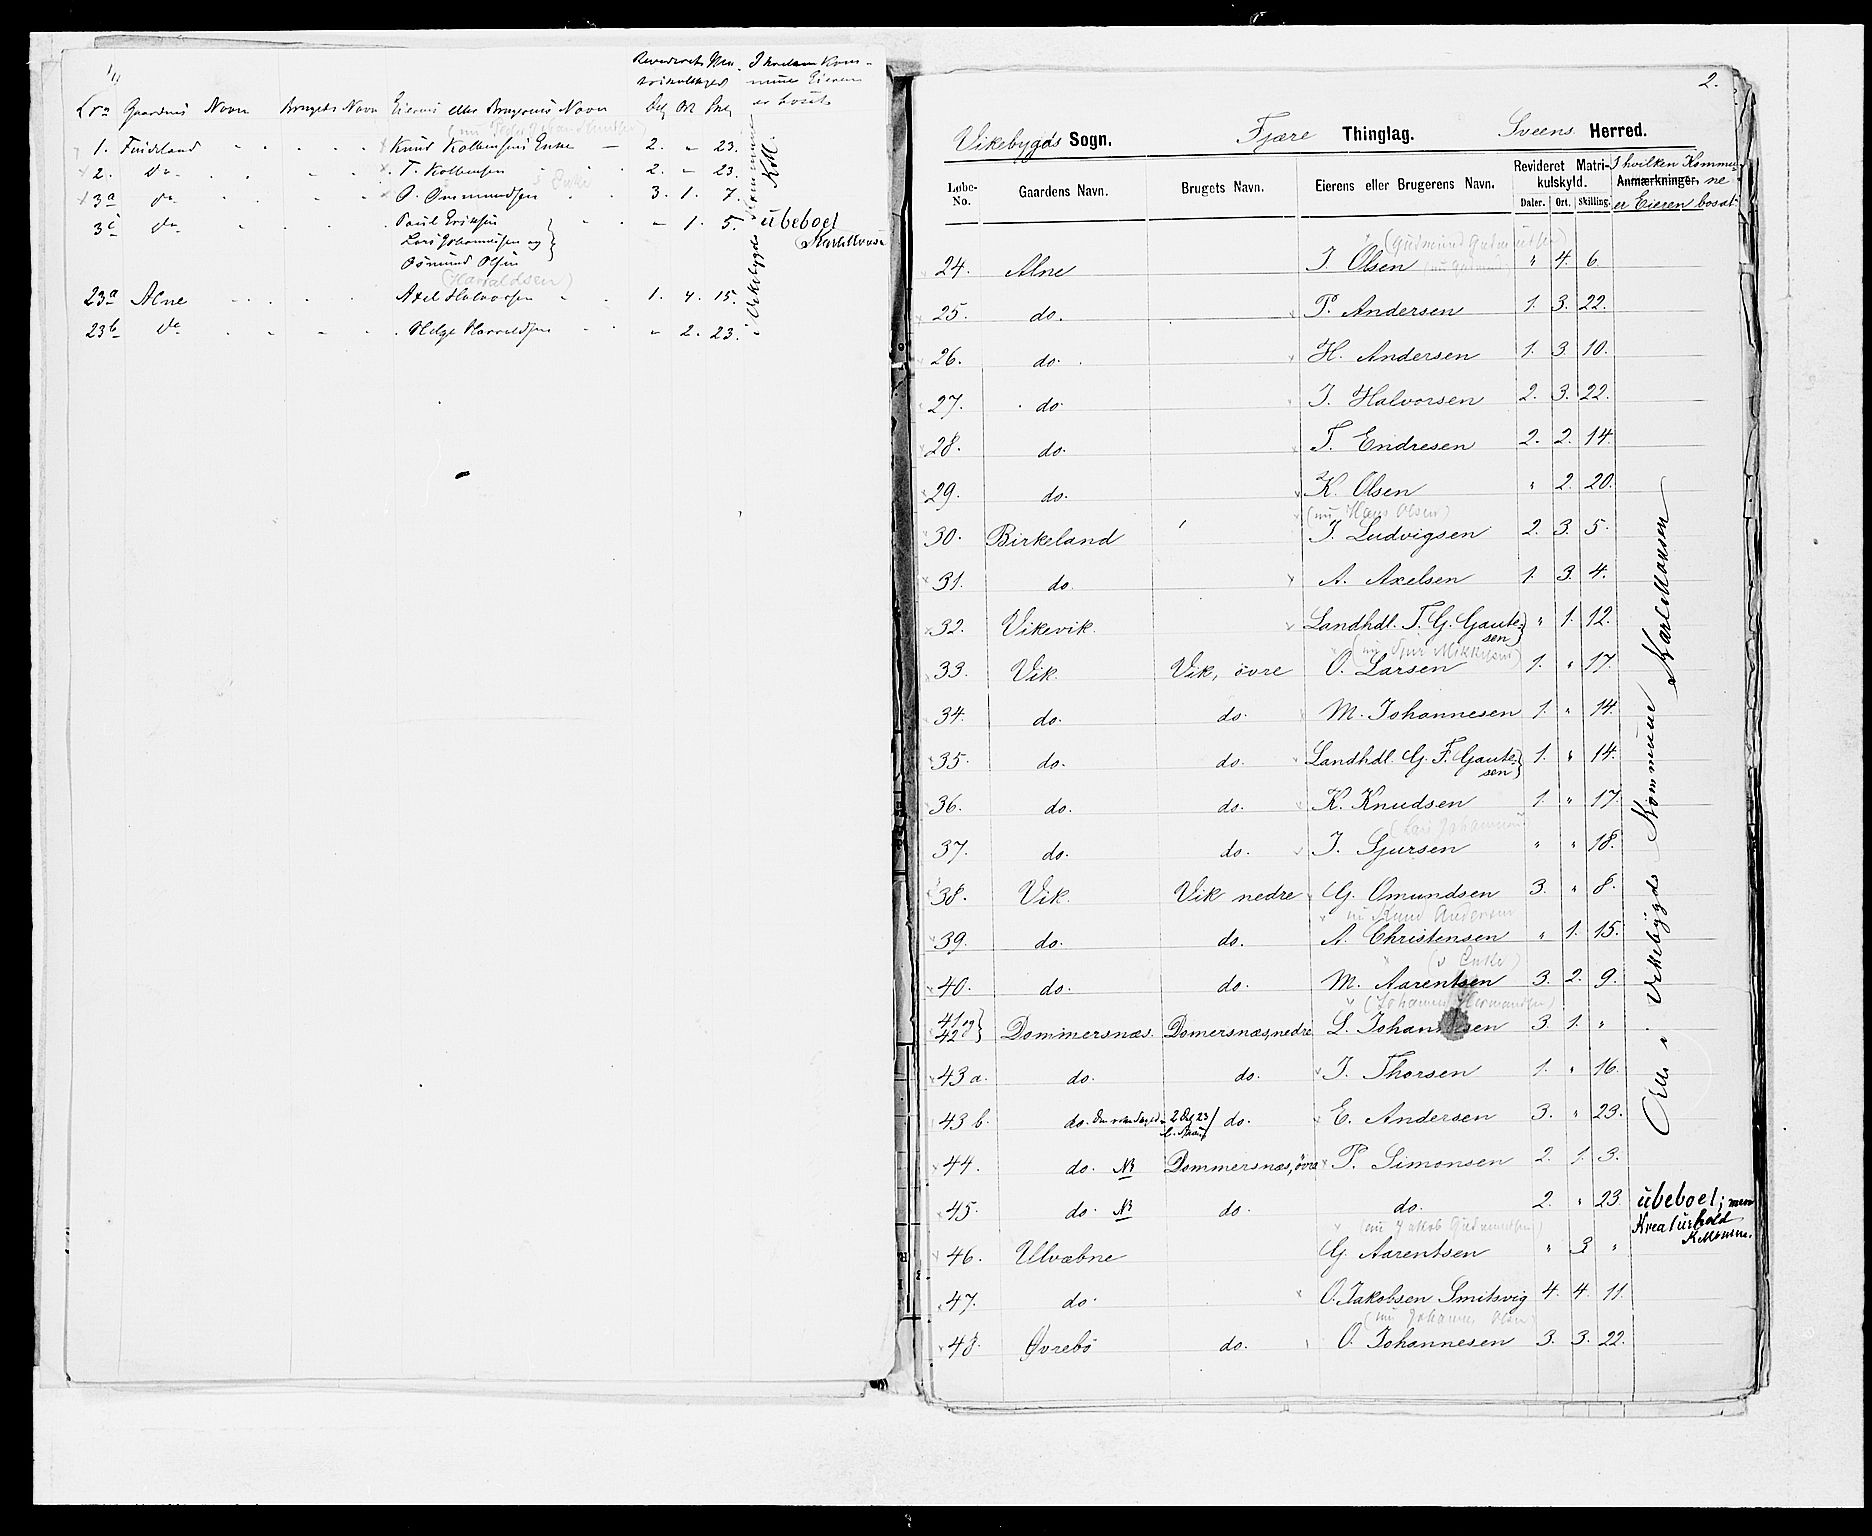 Revideret Ma- I hvilken Kom-
trikulskyld mune Eieren
Lno Gaardens Navn Brugets Navn Eierens eller Brugerens Navn Dlr Ort Skl er bosat
1. Knud Kolbensens Enke 2. " 23.
2. do T. Kolbensen 2. " 23.
3a do O. Ommundsen s Enke 3. 1. 7.
3c do Paul Eriksen " 1. 5. ubeboet
Lars Johannesen og
Osmund Olsen
(Haraldsen)
23a Alne Axel Halvorsen 1. 4. 15.
23b do Helge Harraldsen " 2. 23.
i Vikebygds Kommune
2.
Vikebygds Sogn. Fjære Thinglag. Sveens Herred.
Løbe-No. Gaardens Navn. Brugets Navn. Eierens eller Brugerens Navn. Revideret Matrikulskyld. Daler. Ort. Skilling. Anmærkninger. I hvilken Kommune er Eieren bosat
24. Alne I. Olsen " 4. 6.
25. do. P. Andersen 1. 3. 22.
26. do. H. Andersen 1. 3 10.
27. do I. Halvorsen 2. 3. 22.
28. do. T. Endresen 2. 2. 14
29. do. K. Olsen " 2. 20.
(nu Hans Olsen)
30. Birkeland I. Ludvigsen 2. 3. 5.
31. do. A. Axelsen 1. 3 4.
32. Vikevik. Landhdl. T. G. Gautesen " 1. 12.
33. Vik. Vik, övre O. Larsen 1. " 17.
34. do. do. M. Johannesen 1. " 14.
35. do. do. Landhdl. G. T. Gautesen 1. " 14.
36. do. do. K. Knudsen 1. " 17.
37. do. do. I. Sjursen " " 18.
38. Vik. Vik nedre G. Omundsen 3. " 8.
nu Knud Andersen
39. do. do. A. Christensen " 1. 15.
(s Enke)
40. do. do. M. Aarentsen 3. 2. 9.
41 og 42 Dommersnæs. Domersnæs, nedre L. Johannesen 3. 1. "
43 a. do. do. I. Thorsen 1. " 16.
43 b. do. do. E. Andersen 3. " 23.
44. do. NB Dommersnæs, övre P. Simonsen 2. 1. 3.
45. do. NB do. do. 2. " 23 ubeboet; men
Kreaturhold
(nu Jakob Gudmundsen)
46. Ulvæbne G. Aarentsen " 3 "
47. do. O. Jakobsen Smitsvig 4. 4. 11.
(nu Johannes Olsen)
48. Øvrebö do. O. Johannesen 3. 3. 22.
Alle i Vikebygds Kommune